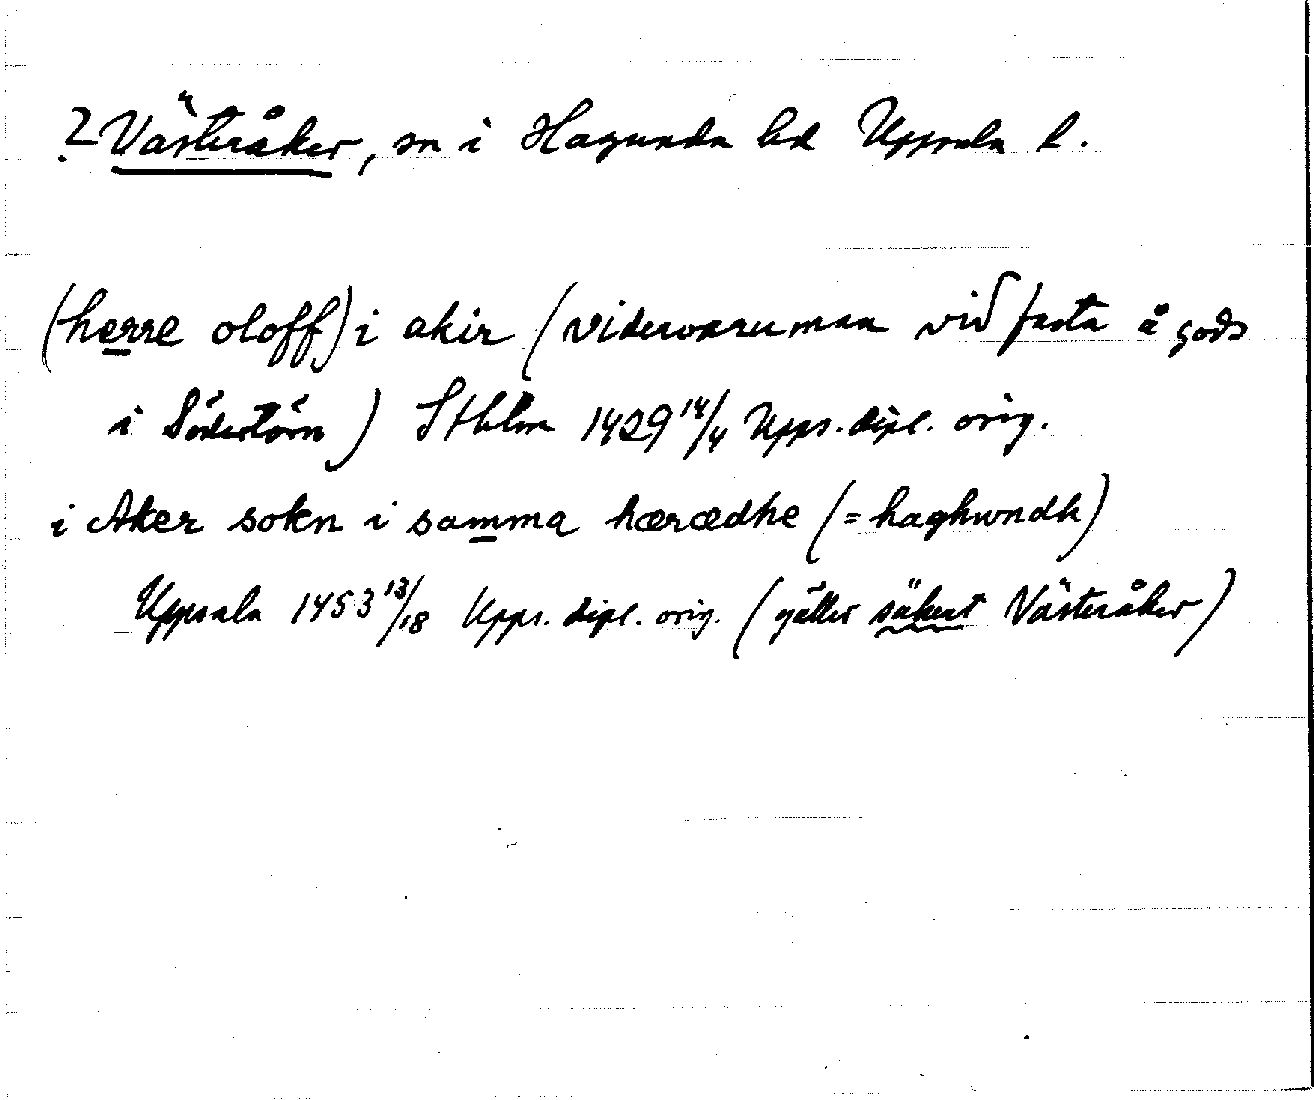 ? Västeråker, sn i Hagunda hd Uppsala l.
(herre oloff) i akir (vidervaruman vid fasta å gods
i Södertörn) Sthlm 1429 14/4 Upps. dipl. orig.
i Aker sokn i samma hæredhe (= haghwndh)
Uppsala 1453 13/18 Upps. dipl. orig. (gäller säkert Västeråker)